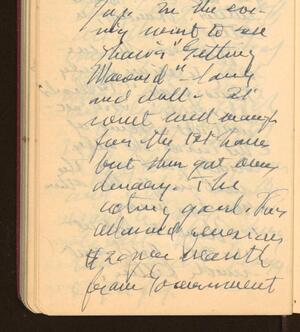 Japs. In the eve-
ning went to see
Shaw's "Getting
Married" - long
and dull - It
went well enough
for the 1st hour
but then got very
dreary. The
acting good. Jap
allowed
$20 per month
from Government